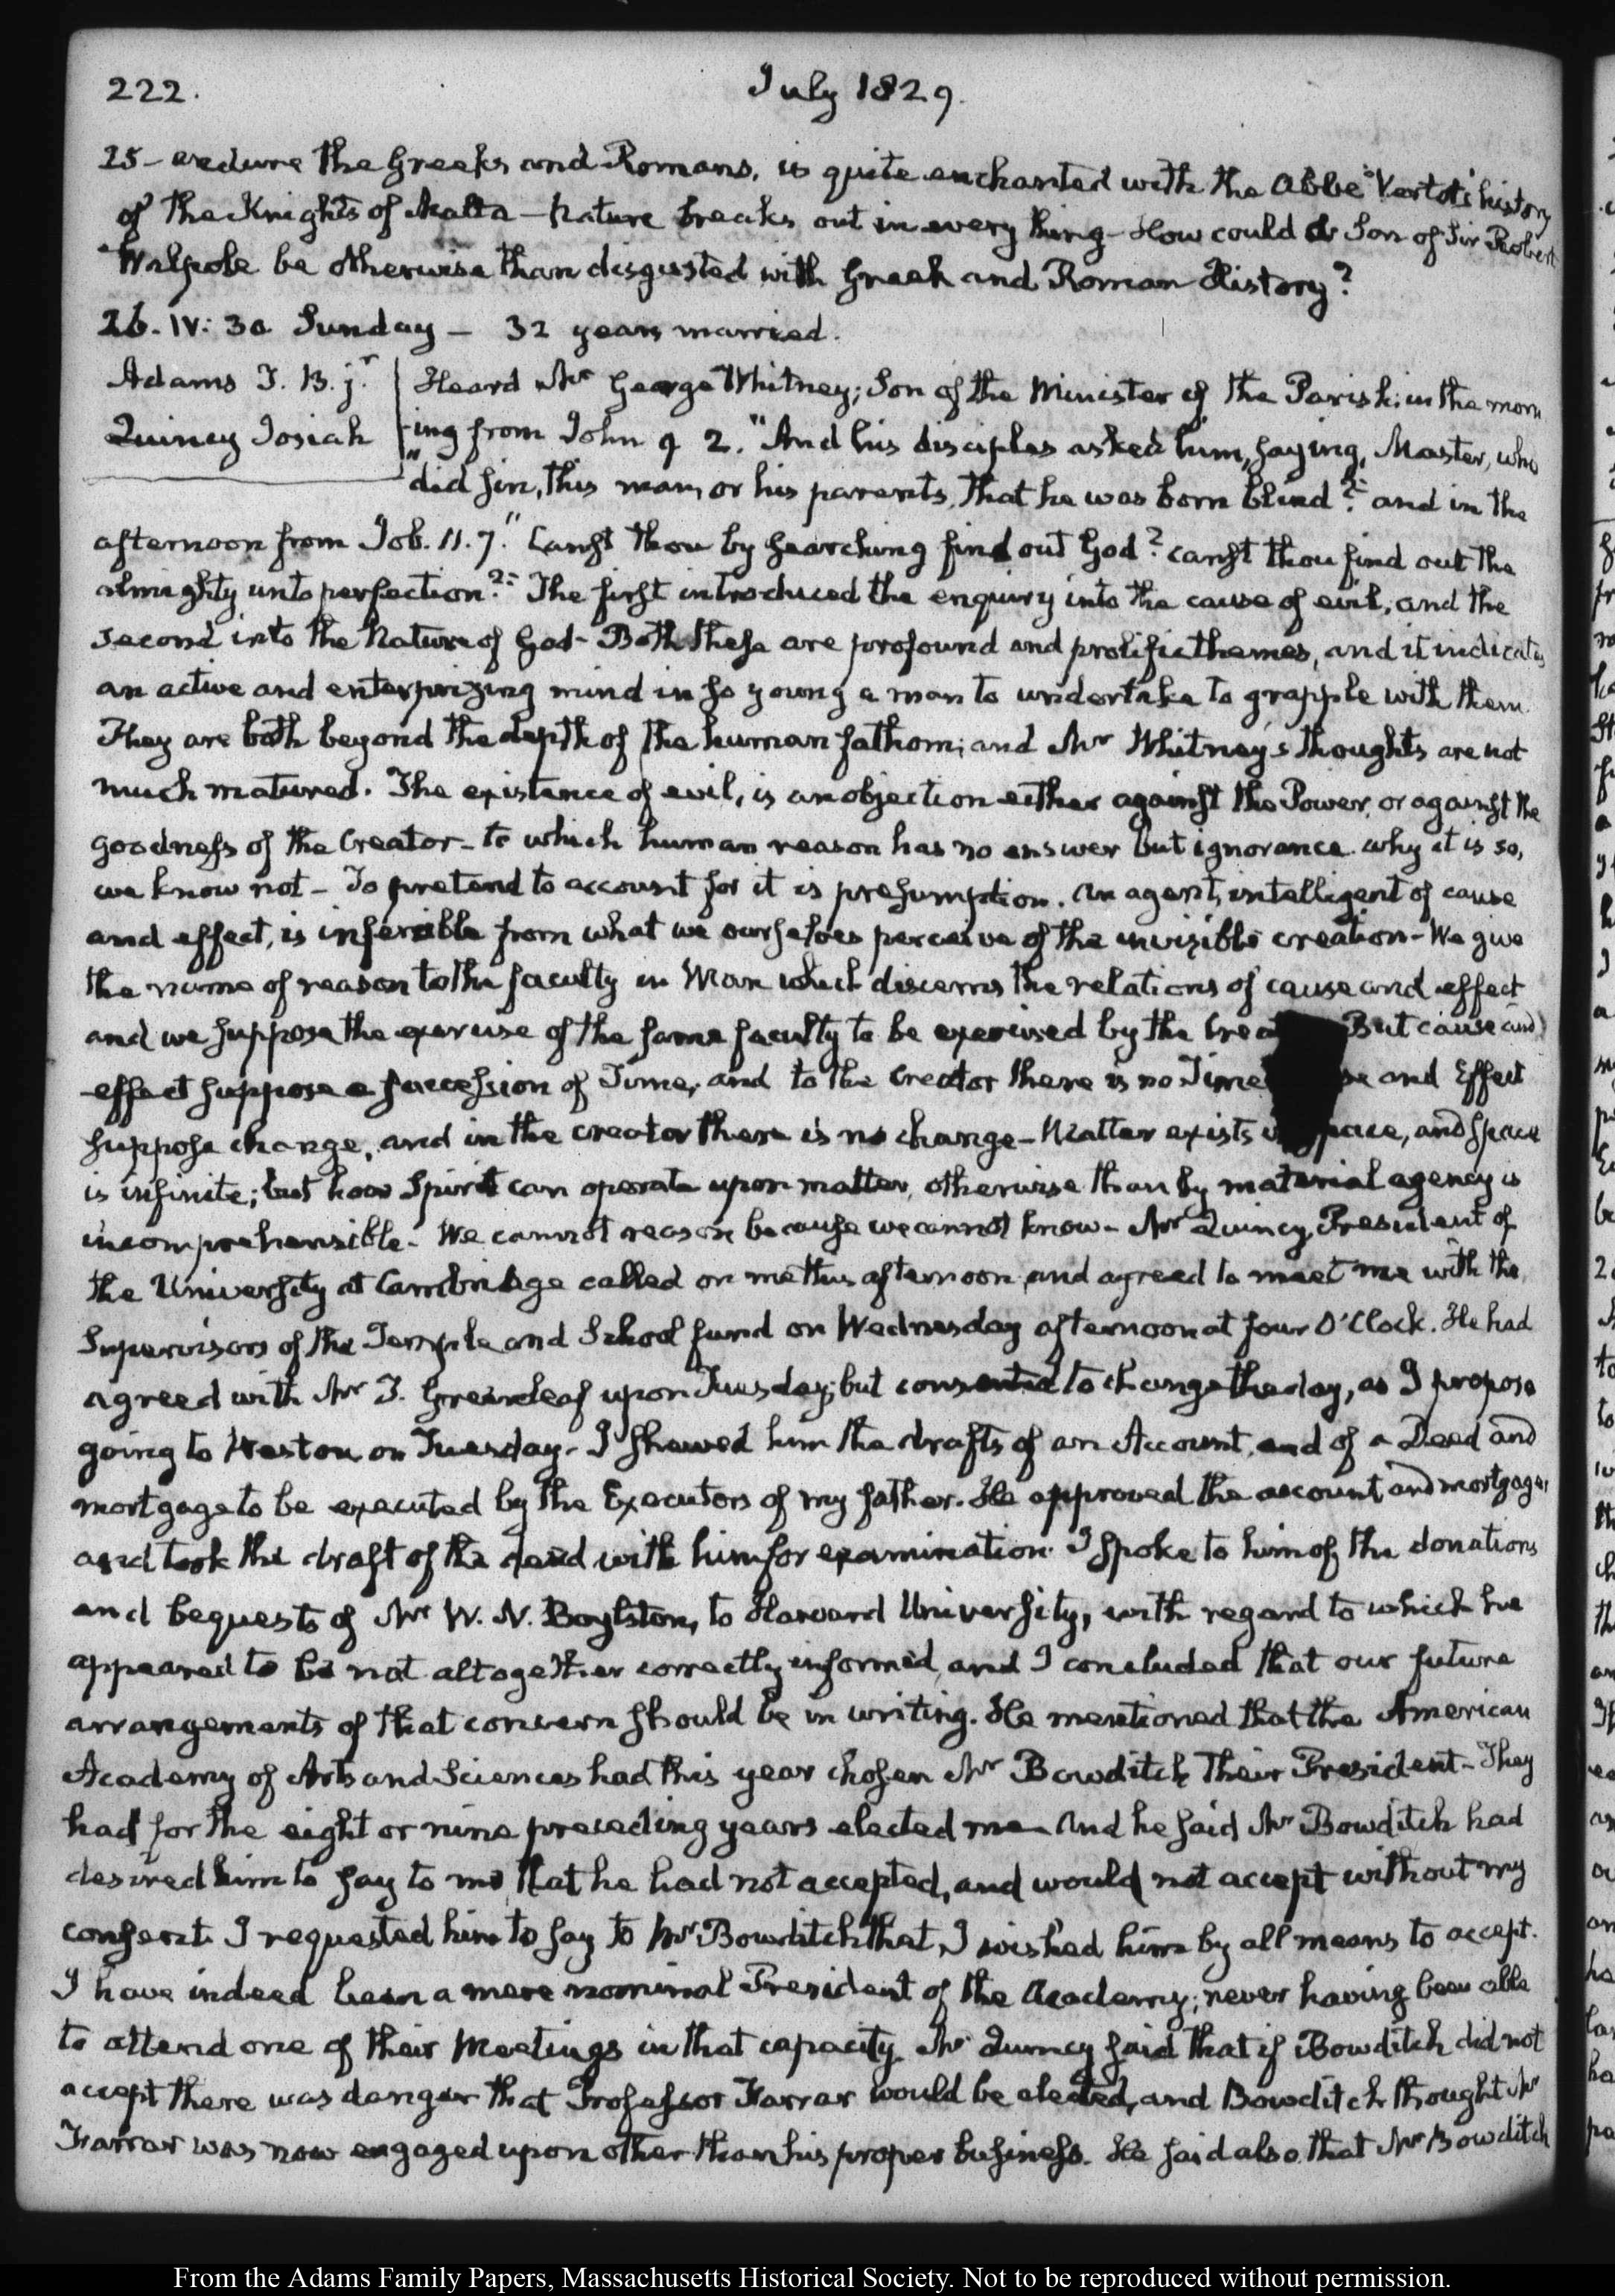 222.
July 1829.
25 - endure the Greeks and Romans, is quite enchanted with the Abbé Vertot's history
of the Knights of Malta - Nature breaks out in every thing - How could a Son of Sir Robert
Walpole be otherwise than disgusted with Greek and Roman History?
26. IV: 30 Sunday - 32 years married.
Adams J. B. jr
Quincy Josiah
Heard Mr George Whitney; Son of the Minister of the Parish: in the morn
ing from John 9 2. "And his disciples asked him, saying, Master, who
"did sin, this man, or his parents, that he was born blind?" and in the
afternoon from Job. 11. 7. "Canst thou by searching find out God? canst thou find out the
almighty unto perfection?" The first introduced the enquiry into the cause of evil, and the
second into the Nature of God - Both these are profound and prolific themes, and it indicates
an active and enterprizing mind in so young a man to undertake to grapple with them.
They are both beyond the depth of the human fathom; and Mr Whitney's thoughts are not
much matured. The existence of evil, is an objection either against the Power, or against the
goodness of the Creator - to which human reason has no answer but ignorance. Why it is so,
we know not - To pretend to account for it is presumption. An agent, intelligent of cause
and effect, is inferible from what we ourselves perceive of the invizible creation - We give
the name of reason to the faculty in Man which discerns the relations of cause and effect
and we suppose the exercise of the same faculty to be exercised by the Crea But cause and
effect suppose a succession of Time, and to the Creator there is no Time se and Effect
suppose change, and in the creator there is no change - Matter exists space, and space
is infinite; but how Spirit can operate upon matter, otherwise than by material agency is
incomprehensible - We cannot reason because we cannot know - Mr Quincy, President of
the University at Cambridge called on me this afternoon, and agreed to meet me with the
Supervisors of the Temple and School fund on Wednesday afternoon at four O'Clock. He had
agreed with Mr T. Greenleaf upon Tuesday; but consented to change the day, as I propose
going to Weston on Tuesday - I shewed him the drafts of an Account, and of a Deed and
mortgage to be executed by the Executors of my father. He approved the account and mortgage,
and took the draft of the deed with him for examination. I spoke to him of the donations
and bequests of Mr W. N. Boylston, to Harvard University, with regard to which he
appeared to be not altogether correctly informed, and I concluded that our future
arrangements of that concern should be in writing. He mentioned that the American
Academy of Arts and Sciences had this year chosen Mr Bowditch their President - They
had for the eight or nine preceding years elected me - And he said Mr Bowditch had
desired him to say to me that he had not accepted, and would not accept without my
consent. I requested him to say to Mr Bowditch that I wished him by all means to accept.
I have indeed been a mere nominal President of the Academy; never having been able
to attend one of their Meetings in that capacity. Mr Quincy said that if Bowditch did not
accept there was danger that Professor Farrar would be elected, and Bowditch thought Mr
Farrar was now engaged upon other than his proper business. He said also that Mr Bowditch
From the Adams Family Papers, Massachusetts Historical Society. Not to be reproduced without permission.